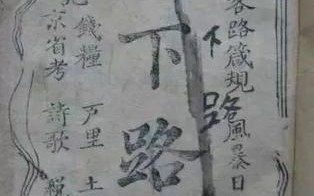 客路箴規
下路
風暴日
下路
錢糧 万里 土
詩歌 税
京省考